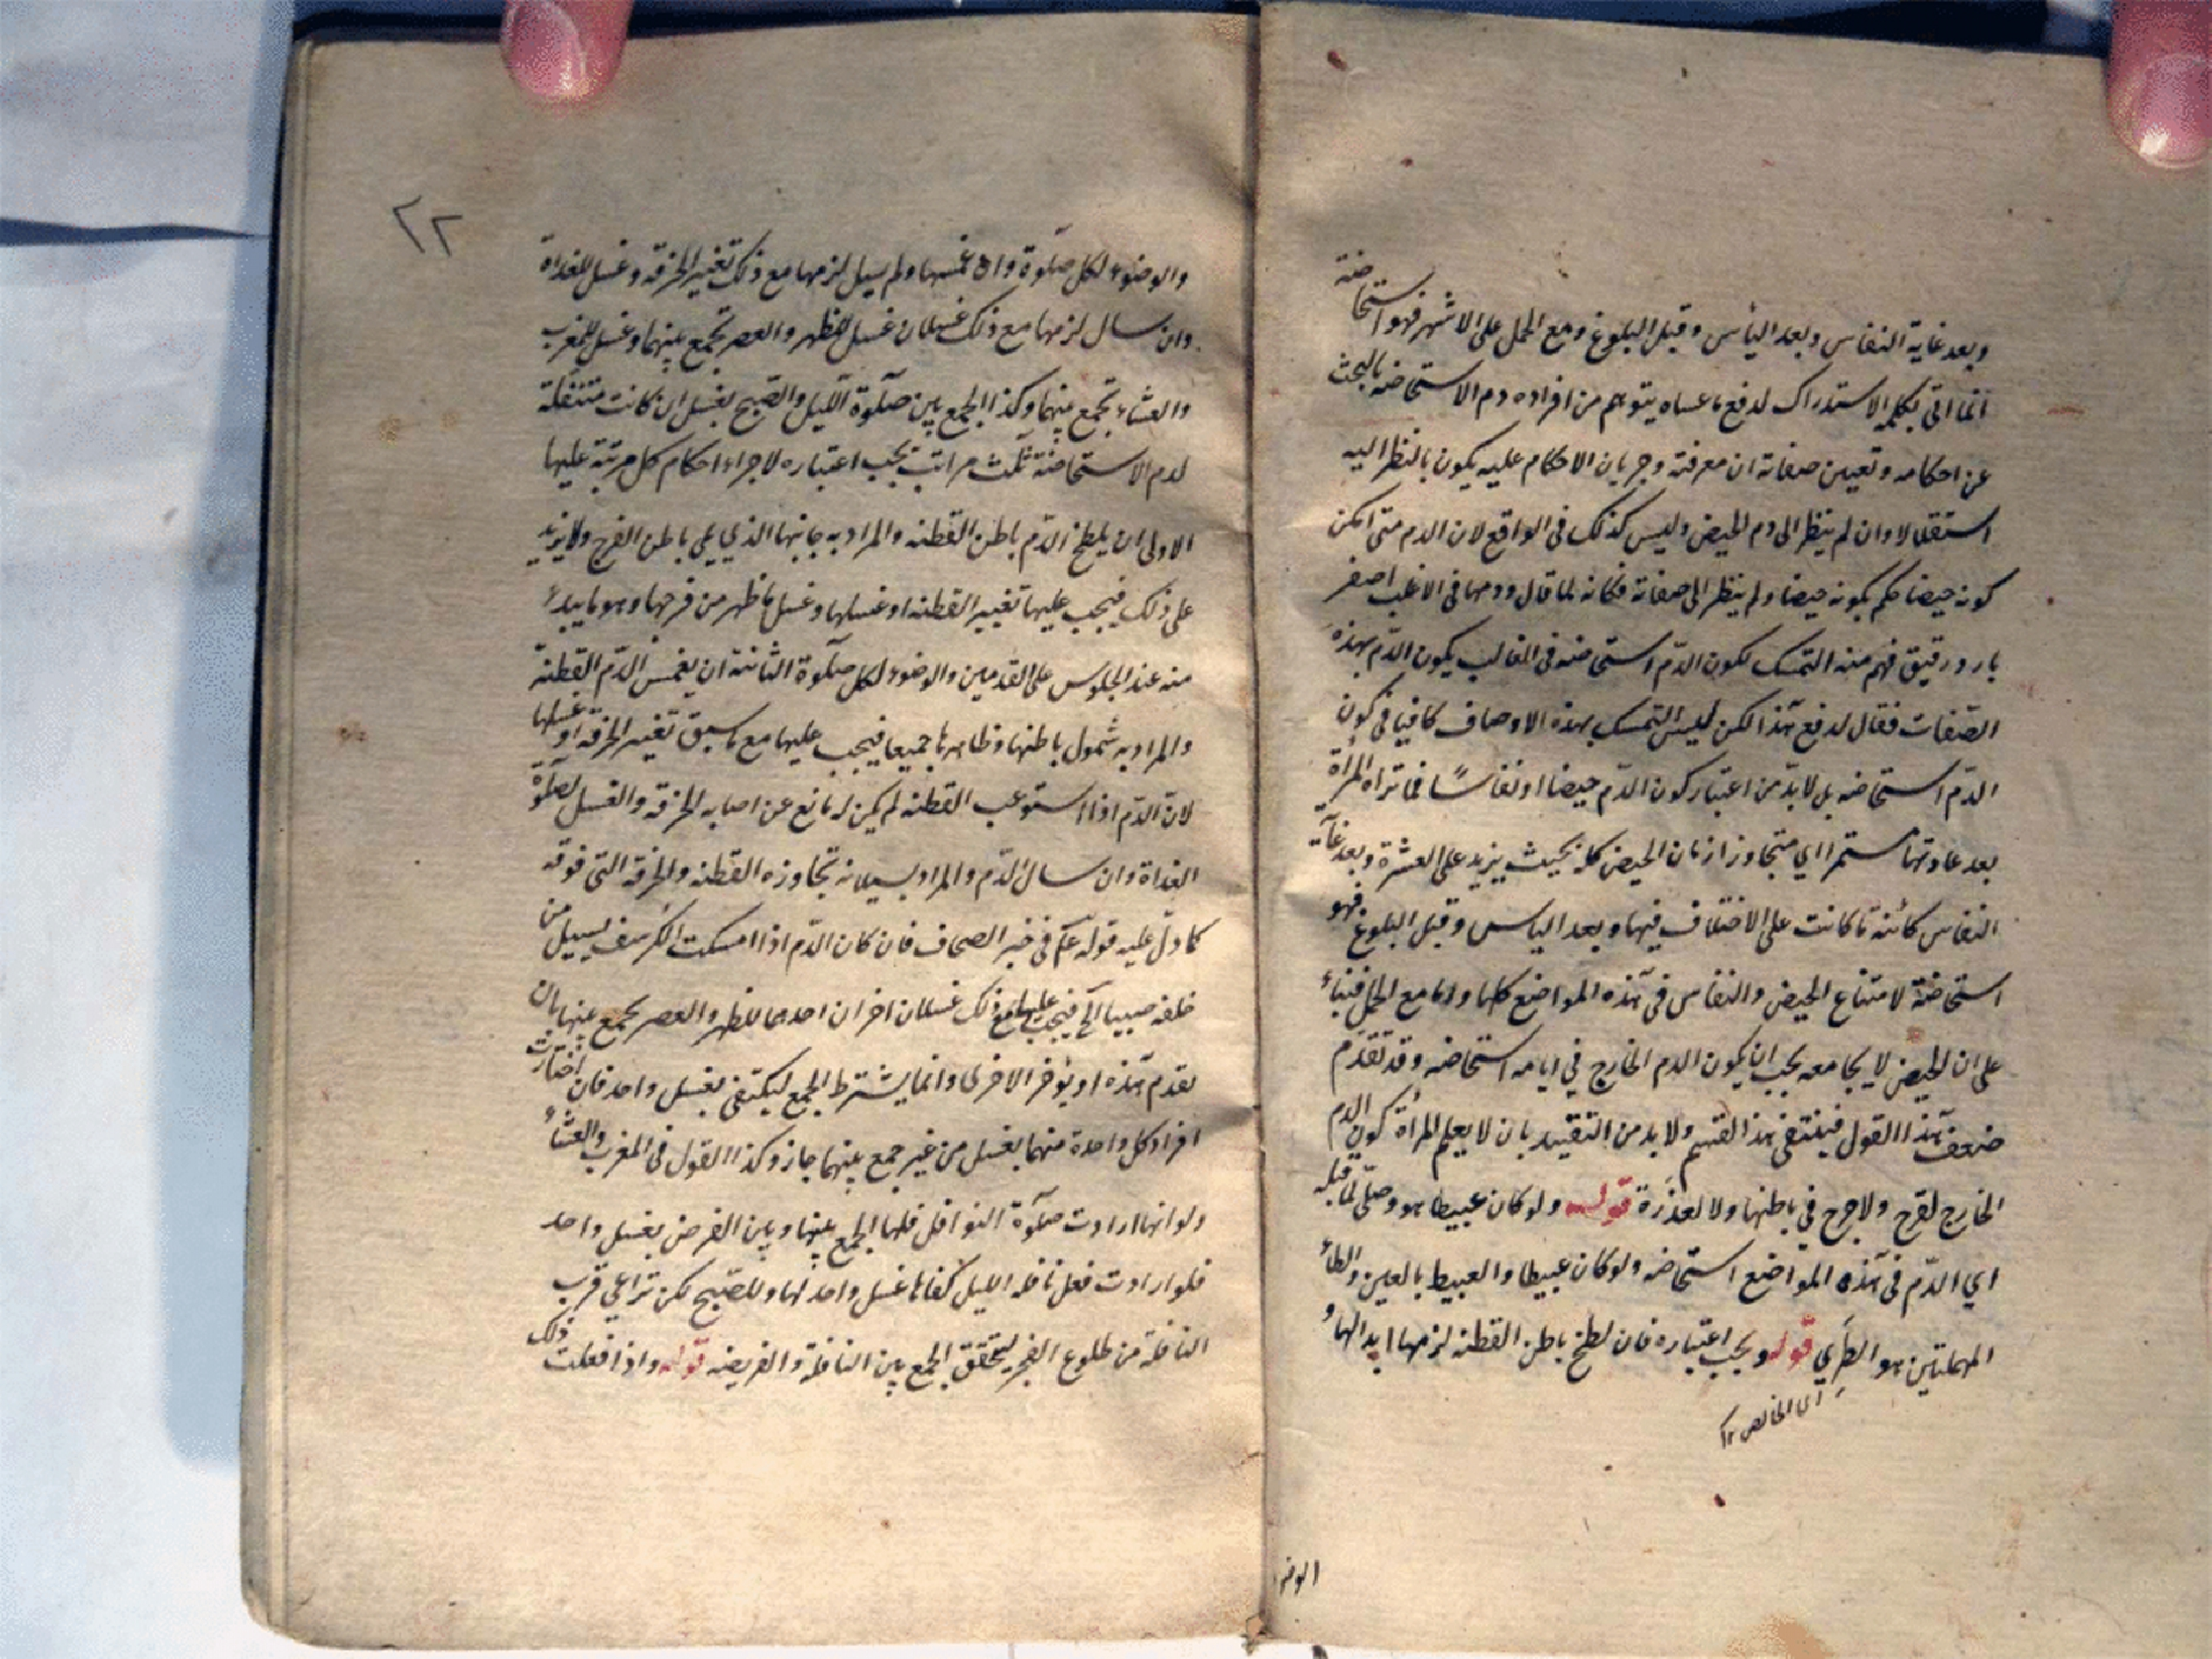 وبعد غاية النفاس وبعد اليأس وقبل البلوغ ومع الحمل على الاشهر فهو استحاضة
انما اتى بكلمه الاستدراك لدفع ما عساه يتوهم من افراده دم الاستحاضه بالبحث
عن احكامه وتعيين صفاته ان معرفته وجريان الاحكام عليه يكون بالنظر اليه
استقلالا وان لم ينظر الى دم الحيض وليس كذلك فى الواقع لان الدم متى امكن
كونه حيضا حكم بكونه حيضا ولم ينظر الى صفاته فكانه لما قال ودمها فى الاغلب اصفر
بارد رقيق فهم منه التمسك لكون الدّم استحاضه فى الغالب بكون الدّم بهذه
الصّفات فقال لدفع هذا لكن ليس التمسك بهذه الاوصاف كافيا فى كون
الدّم استحاضه بل لا بدّ من اعتبار كون الدّم حيضا او نفاسًا فما تراه المرأة
بعد عادتها مستمرا اي متجاوزا زمان الحيض كله بحيث يزيد على العشرة وبعد غاية
النفاس كائنة ما كانت على الاختلاف فيها وبعد الياس وقبل البلوغ فهو
استحاضة لامتناع الحيض والنفاس فى هذه المواضع كلها واما مع الحمل فبناء
على ان الحيض لا يجامعه يجب ان يكون الدم الخارج في ايامه استحاضه وقد تقدّم
ضعف هذا القول فينتفى هذا القسم ولا بد من التقييد بان لا يعلم المرأة كون الدم
الخارج لقرح ولا جرح في باطنها ولا لعذرة قوله ولو كان عبيطا هو وصلىّ لما قبله
اي الدّم فى هذه المواضع استحاضه ولو كان عبيطا والعبيط بالعين والطاء
المهملتين هو الطري قوله ويجب اعتباره فان لطخ باطن القطنه لزمها ابدالها و
اى الخالص ١٢
الوضوء
٢٢
والوضوء لكل صلوة وان غمسها ولم يسيل لزمها مع ذلك تغيير الخرقه وغسل للغداة
وان سال لزمها مع ذلك غسلان غسل للظهر والعصر تجمع بينهما وغسل للمغرب
والعشاء تجمع بينهما وكذا الجمع بين صلوة الليل والصّبح بغسل ان كانت متنفلة
لدم الاستحاضة ثلث مراتب يجب اعتباره لاجراء احكام كل مرتبة عليها
الاولى ان يلطخ الدّم باطن القطنه والمراد به جانبها الذي يلي باطن الفرج ولا يزيد
على ذلك فيجب عليها تغيير القطنه او غسلها وغسل ما ظهر من فرجها وهو ما يبدء
منه عند الجلوس على القدمين والوضوء لكل صلوة الثانية ان يغمس الدّم القطنة
والمراد به شمول باطنها وظاهرها جميعا فيجب عليها مع ما سبق تغيير الخرقه او غسلها
لان الدّم اذا استوعب القطنه لم يكن له مانع عن اصابه الخرقه والغسل لصلوة
الغداة وان سال الدّم والمراد بسيلانه تجاوزه القطنه والخرقه التى فوقه
كما دلّ عليه قوله عم فى خبر الصحاف فان كان الدّم اذا امسكت الكرسف يسيل من
خلفه صبيبا الخ فيجب عليها مع ذلك غسلان اخران احدهما للظهر والعصر يجمع بينهما بان
يقدم هذه او يؤخر الاخرى وانما يشترط الجمع ليكتفى بغسل واحد فان اختارت
افراد كل واحدة منهما بغسل من غير جمع بينهما جاز وكذا القول فى المغرب والعشاء
ولو انها ارادت صلوة النوافل فلها الجمع بينها وبين الفرض بغسل واحد
فلو ارادت فعل نافله الليل كفاها غسل واحد لها وللصبح لكن تراعي قرب
النافلة من طلوع الفجر ليتحقق الجمع بين النافلة والفريضه قوله واذا فعلت ذلك